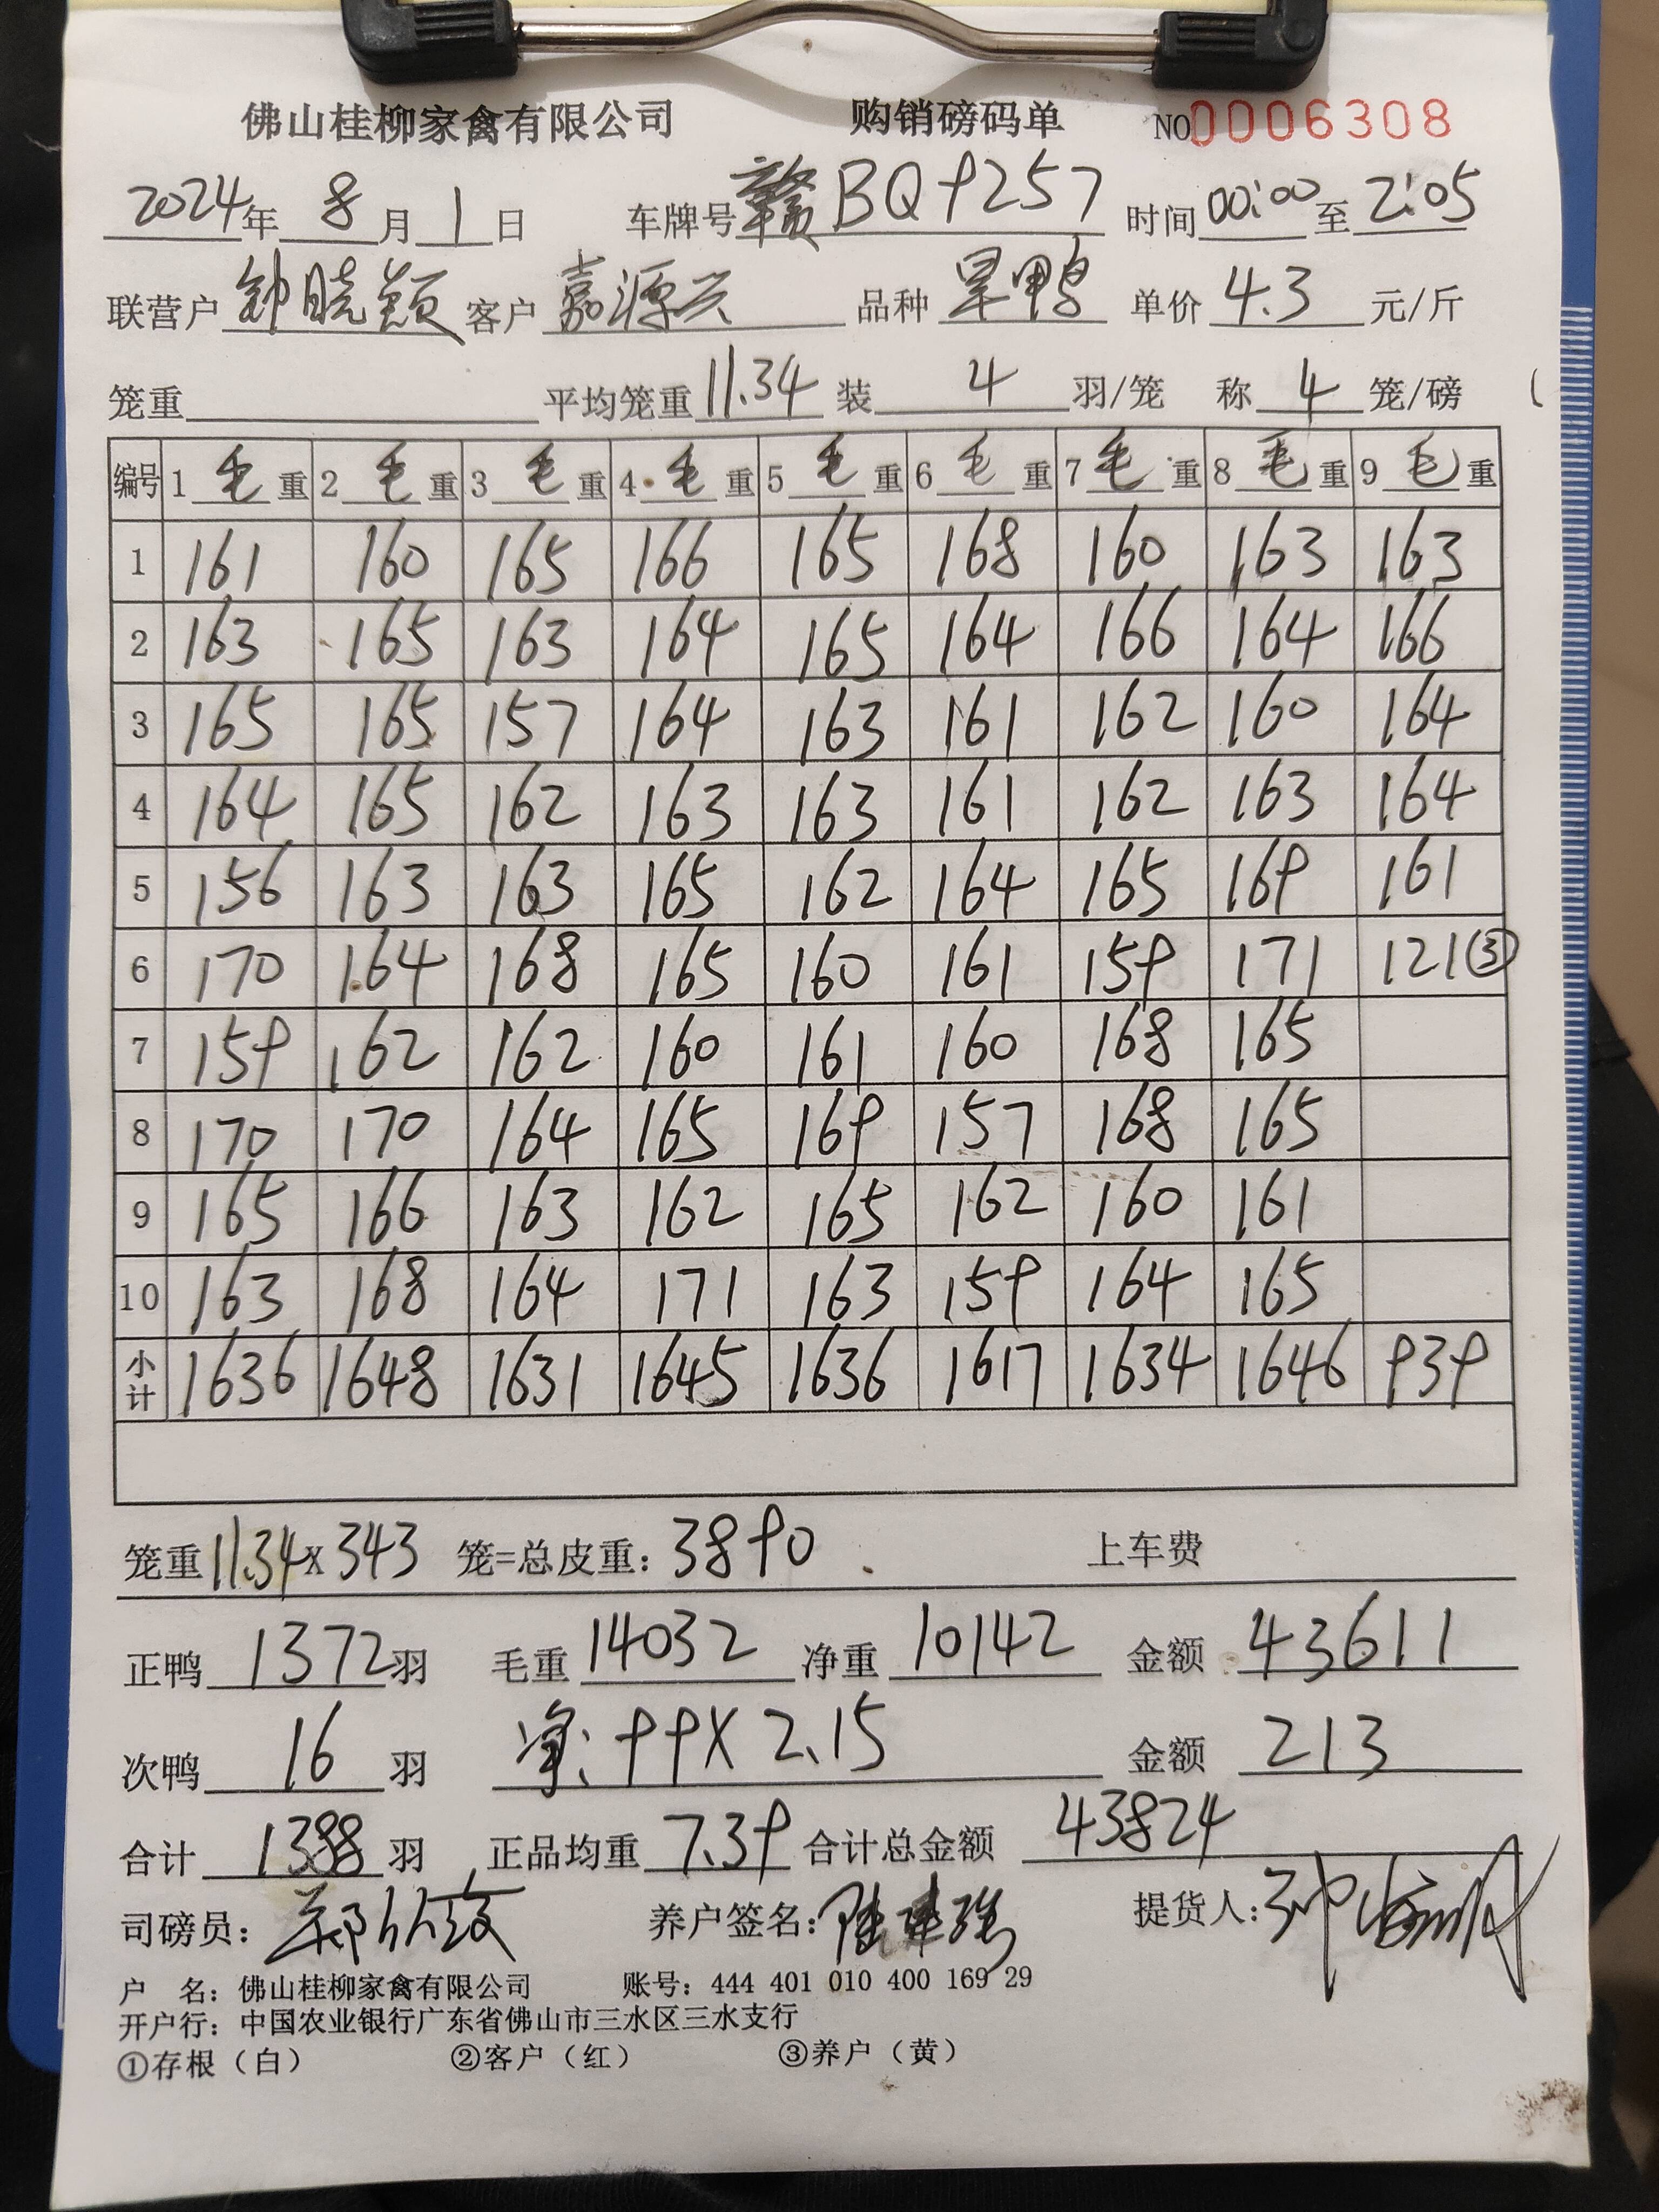 佛山桂柳家禽有限公司 购销磅码单 NO 0006308
2024年 8月 1日 车牌号 赣BQ9257 时间 00:00 至 2:05
联营户 钟晓颖 客户 嘉源兴 品种 旱鸭 单价 4.3 元/斤
笼重 平均笼重 11.34 装 4 羽/笼 称 4 笼/磅
编号 1 毛 重 2 毛 重 3 毛 重 4 毛 重 5 毛 重 6 毛 重 7 毛 重 8 毛 重 9 毛 重
1 161 160 165 166 165 168 160 163 163
2 163 165 163 164 165 164 166 164 166
3 165 165 157 164 163 161 162 160 164
4 164 165 162 163 163 161 162 163 164
5 156 163 163 165 162 164 165 169 161
6 170 164 168 165 160 161 159 171 121③
7 159 162 162 160 161 160 168 165
8 170 170 164 165 169 157 168 165
9 165 166 163 162 165 162 160 161
10 163 168 164 171 163 159 164 165
小计 1636 1648 1631 1645 1636 1617 1634 1646 939
笼重 11.34 x 343 笼=总皮重: 3890 上车费
正鸭 1372 羽 毛重 14032 净重 10142 金额 43611
次鸭 16 羽 净: 99X 2.15 金额 213
合计 1388 羽 正品均重 7.39 合计总金额 43824
司磅员: 养户签名: 提货人:
户 名: 佛山桂柳家禽有限公司 账号: 444 401 010 400 169 29
开户行: 中国农业银行广东省佛山市三水区三水支行
①存根（白） ②客户（红） ③养户（黄）